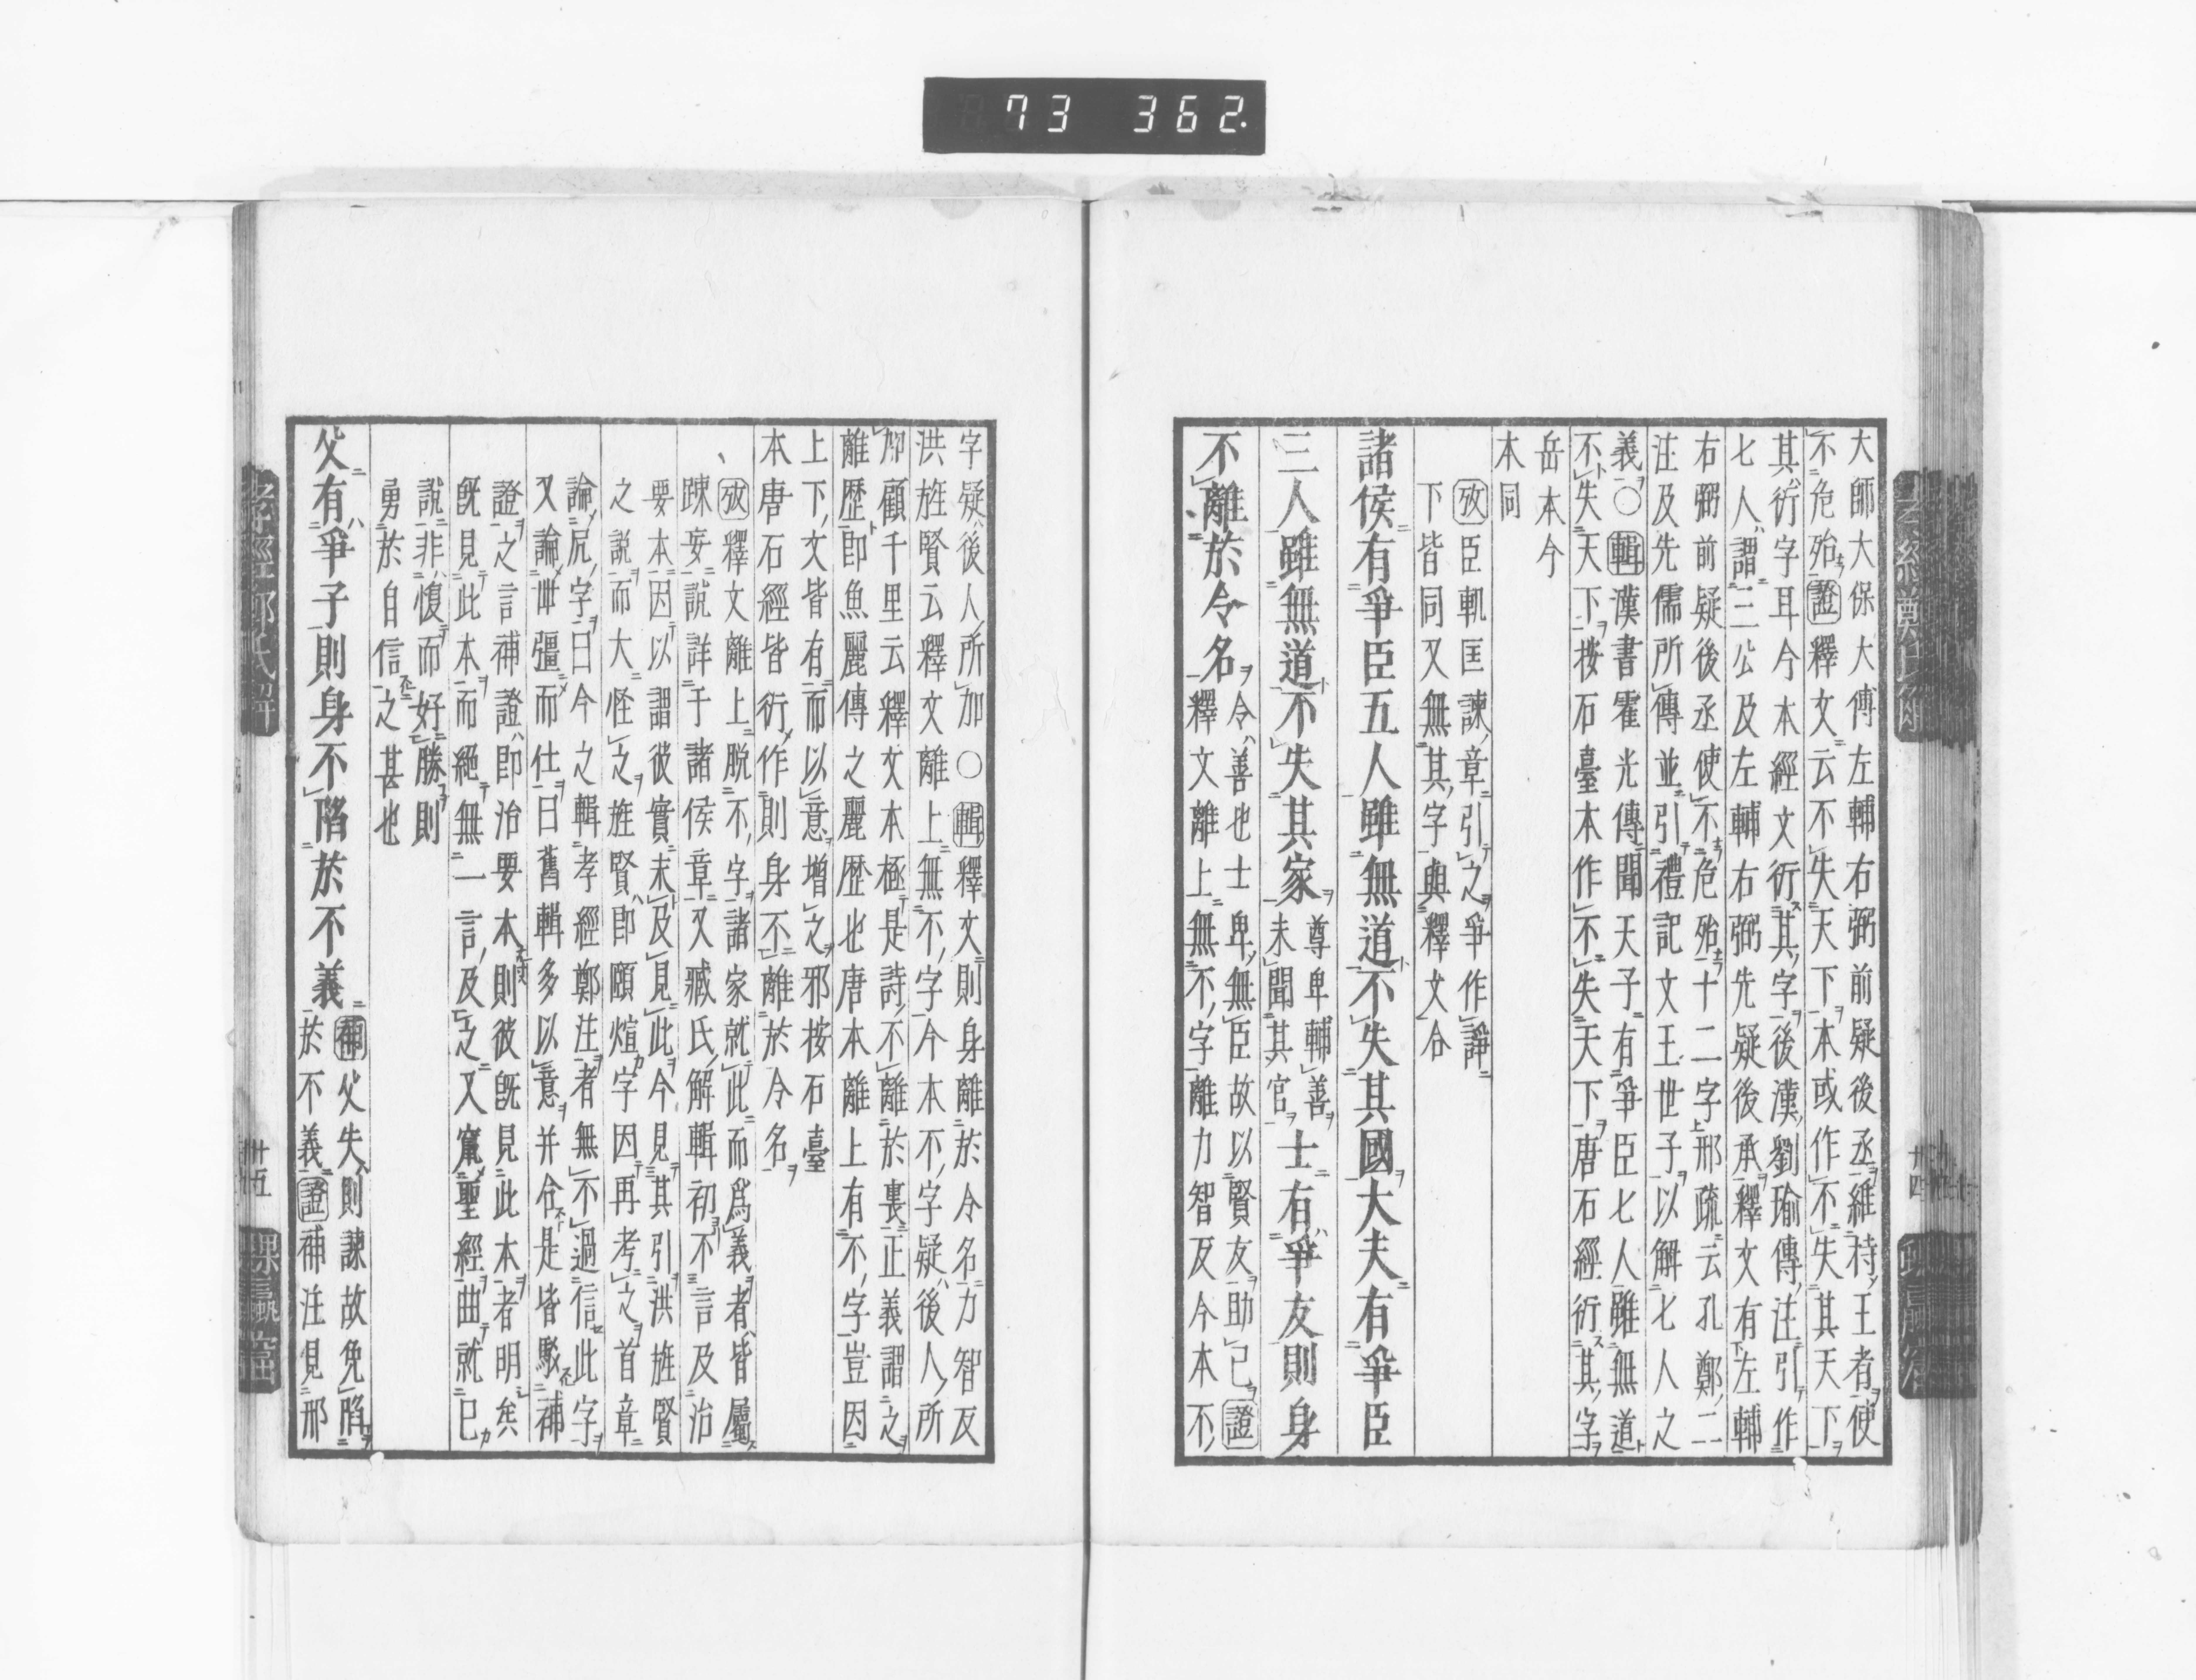 73 362
大師大保大傅左輔右弼前疑後丞維持王者使
不危殆證釋文云不失天下本或作不失其天下
其衍字耳今本經文衍其字後漢劉瑜傳注引作
七人謂三公及左輔右弼先疑後承釋文有左輔
右弼前疑後丞使不危殆十二字邢疏云孔鄭二
注及先儒所傳並引禮記文王世子以解七人之
義○輯漢書霍光傳聞天子有爭臣七人雖無道
不失天下按石臺本作不失天下唐石經衍其字
岳本今
本同
攷臣軌匡諫章引之爭作諍
下皆同又無其字與釋文合
諸侯有爭臣五人雖無道不失其國大夫有爭臣
三人雖無道不失其家
尊卑輔善
未聞其官
士有爭友則身
不離於令名
令善也士卑無臣故以賢友助己證
釋文離上無不字離力智反今本不
字疑後人所加○輯釋文則身離於令名力智反
洪旌賢云釋文離上無不字今本不字疑後人所
加顧千里云釋文本極是詩不離於裏正義謂之
離歷卽魚麗傳之麗歷也唐本離上有不字豈因
上下文皆有而以意增之邪按石臺
本唐石經皆衍作則身不離於令名
攷釋文離上脫不字諸家就此而爲義者皆屬
踈妄說詳于諸侯章又臧氏解輯初不言及治
要本因以謂彼實未及見此今見其引洪旌賢
之說而大怪之旌賢卽頤煊字因再考之首章
論尻字曰今之輯孝經鄭注者無不過信此字
又論卌彊而仕曰舊輯多以意并合是皆駁補
證之言補證卽治要本則彼旣見此本者明矣
旣見此本而絕無一言及之又竄聖經曲就已
說非愎而好勝則
勇於自信之甚也
父有爭子則身不陷於不義
補父失則諫故免陷
於不義證補注見邢
孝經鄭氏解
卅四
卅五